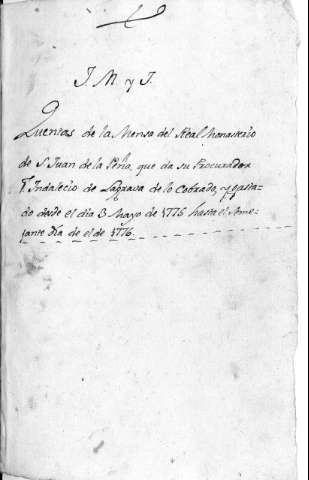 J. M. y J.
Quentas de la Mensa del Real Monasterio
de S. Juan de la Peña, que da su Procurador
Indalecio de Lagrava de lo Cobrado, y gasta-
do desde el dia 3 Mayo de 1775 hasta el seme-
jante dia de el de 1776.